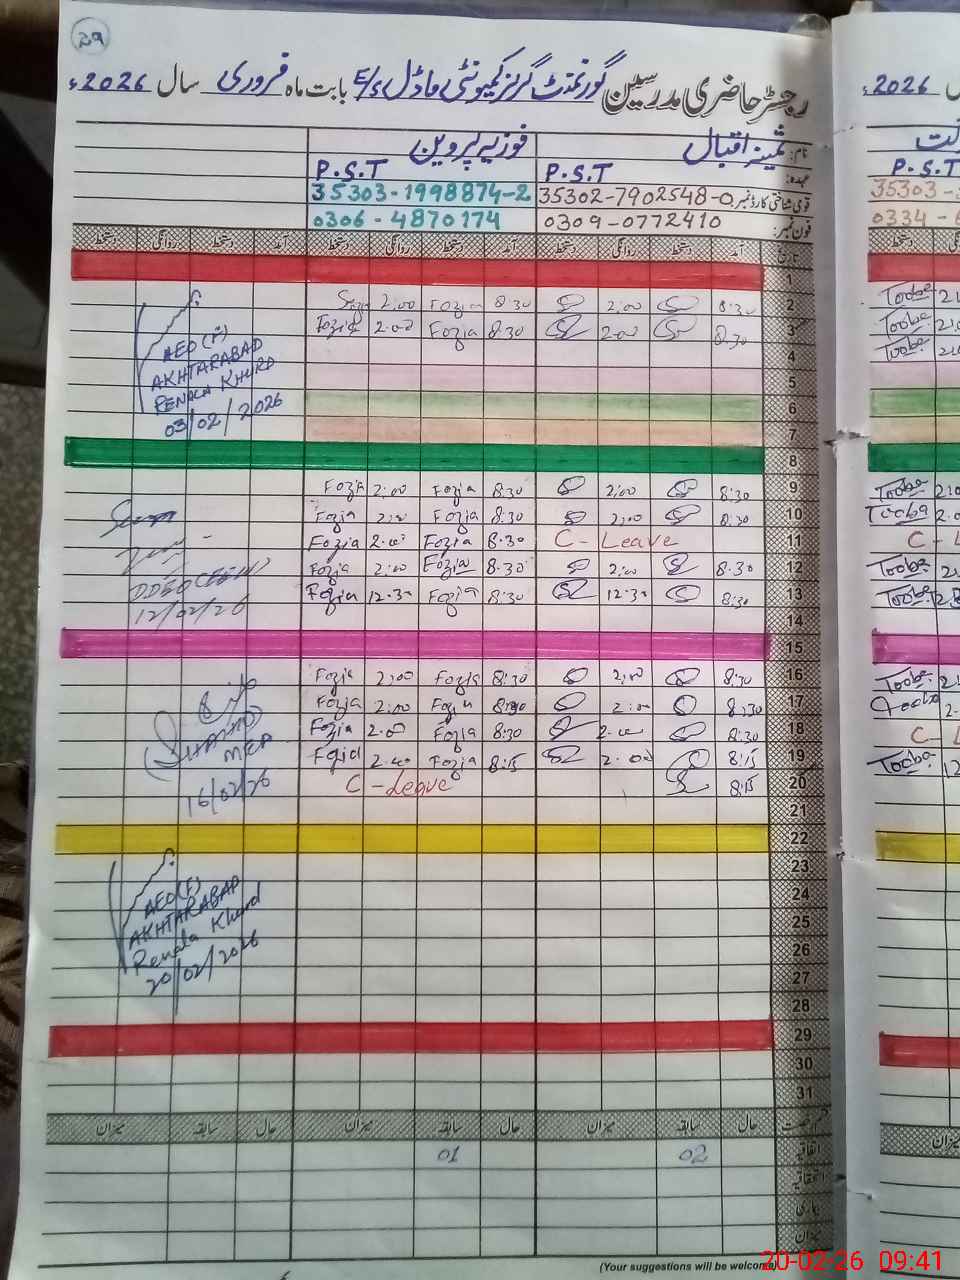 29
رجسٹر حاضری مدرسین گورنمنٹ گرلز کمیونٹی ماڈل E/S بابت ماہ فروری سال 2026ء
نام: ثمینہ اقبال فوزیہ پروین
عہدہ: P.S.T P.S.T
قومی شناختی کارڈ نمبر: 35302-7902548-0 35303-1998874-2
فون نمبر: 0309-0772410 0306-4870174
تاریخ آمد دستخط روانگی دستخط آمد دستخط روانگی دستخط آمد دستخط روانگی دستخط
1
2 8:30 2:00 8:30 Fozia 2:00
3 8:30 2:00 8:30 Fozia 2:00 Fozia
4
5
6
7
8
9 8:30 2:00 8:30 Fozia 2:00 Fozia
10 8:30 2:00 8:30 Fozia 2:00 Fozia
11 C-Leave 8:30 Fozia 2:00 Fozia
12 8:30 2:00 8:30 Fozia 2:00 Fozia
13 8:30 12:30 8:30 Fozia 12:30 Fozia
14
15
16 8:30 2:00 8:30 Fozia 2:00 Fozia
17 8:30 2:00 8:30 Fozia 2:00 Fozia
18 8:30 2:00 8:30 Fozia 2:00 Fozia
19 8:15 2:00 8:15 Fozia 2:00 Fozia
20 8:15 C-Leave
21
22
23
24
25
26
27
28
29
30
31
حال سابقہ میزان حال سابقہ میزان حال سابقہ میزان
اتفاقیہ 02 01
میزان
AEO (F)
AKHTARABAD
RENALA KHURD
03/02/2026
12/02/26
MEA
16/02/26
AEO(F)
AKHTARABAD
Renala Khurd
20/02/2026
(Your suggestions will be welcome)
2026ء
P.S.T
35303-
0334-
Tooba
Tooba
Tooba
Tooba
Tooba
C-L
Tooba
Tooba
Tooba
Tooba
C-L
Tooba
میزان
20-02-26 09:41